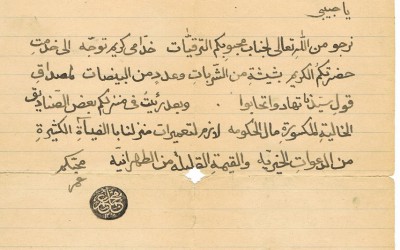 يا حبيبي
نرجو من الله تعالى لجناب محبوبكم الترقيات خدامي كريم توجه الى خدمت
حضرتكم الكريم بشيشة من الشربات وعدد من البيضات لمصداق
قول سيدنا تهادوا تحابوا وبعد رئيت في منزلكم بعض الصناديق
الخالية المكسورة مال الحكومه لازم لتعميرات منزلنا بالفيأة الكثيرة
من الدعوات الخيرية والقيمة القليلة من الطهرانية محبكم
عمر